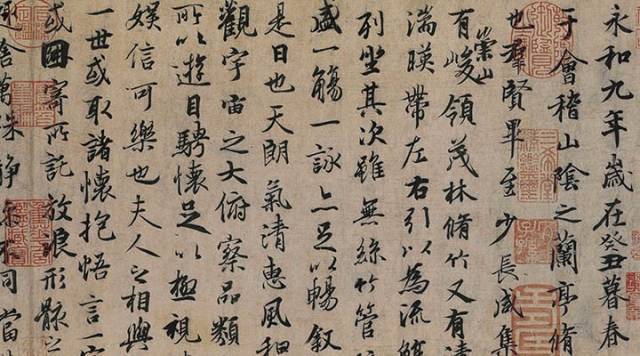 永和九年歲在癸丑暮春
于會稽山陰之蘭亭脩
也羣賢畢至少長咸集
有崇山峻領茂林脩竹又有清
湍暎帶左右引以為流觴
列坐其次雖無絲竹管
盛一觴一詠亦足以暢敘
是日也天朗氣清惠風和
觀宇宙之大俯察品類
所以遊目騁懷足以極視
娛信可樂也夫人之相與
一世或取諸懷抱悟言一室
或因寄所託放浪形骸之
舍萬殊靜躁不同當